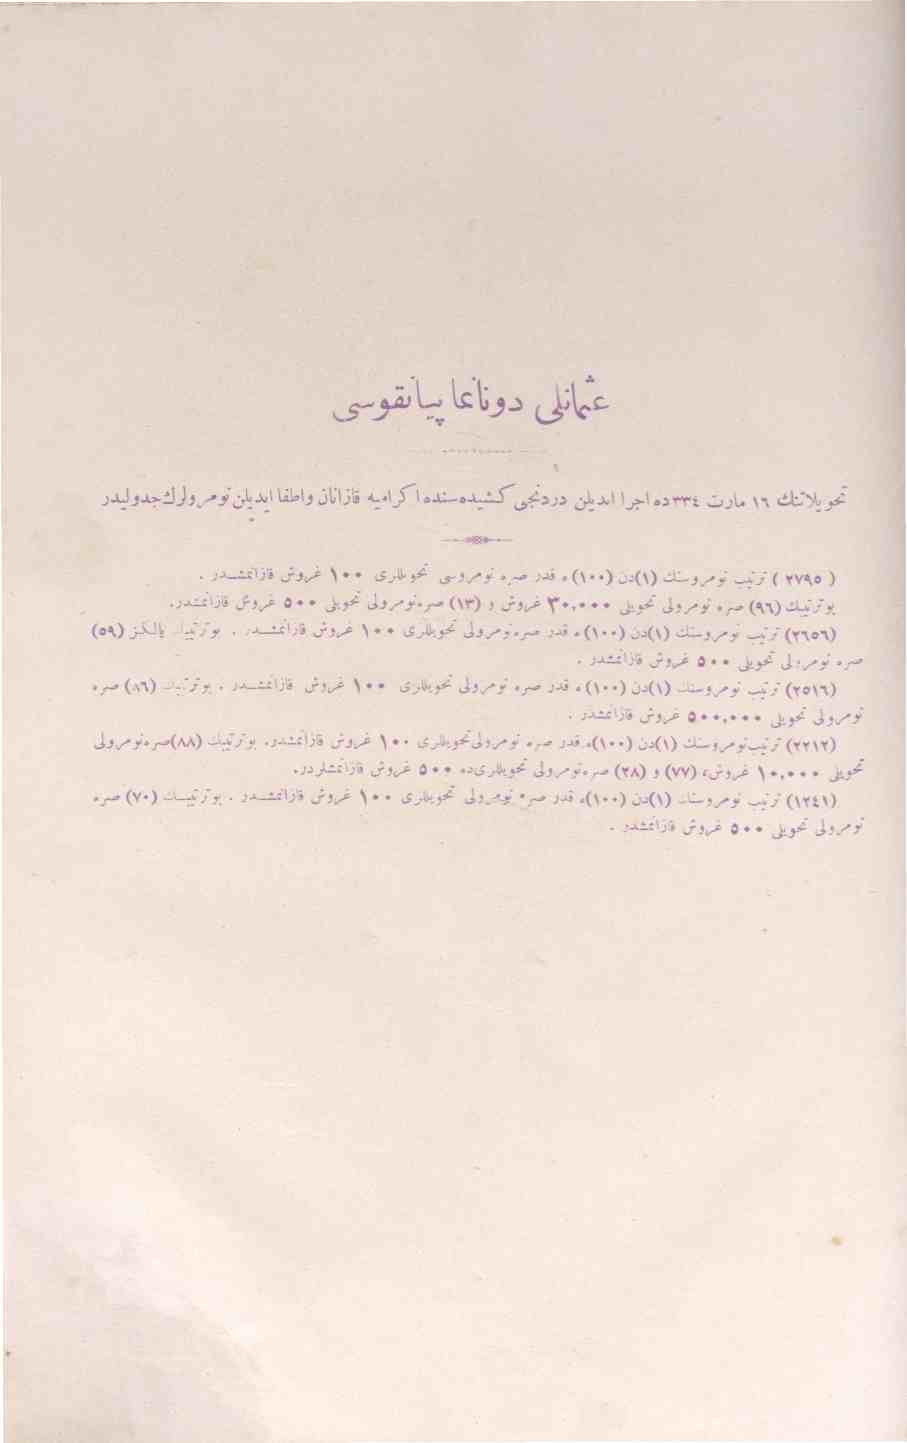 عثمانلی دونانما پیانقوسی
تحویلاتنك ١٦ مارت ٣٣٤ ده اجرا ایدیلن دردنجی كشیده‌سنده اكرامیه قازانان واطفا ایدیلن نومرولرك جدولیدر
( ٢٧٩٥ ) ترتیب نومروسنك (١)دن (١٠٠)ه قدر صره نومروسی تحویللری ١٠٠ غروش قازانمشدر .
بوترتیبك (٩٦) صره نومرولی تحویلی ٣٠,٠٠٠ غروش و (١٣) صره نومرولی تحویلی ٥٠٠ غروش قازانمشدر.
(٢٦٥٦) ترتیب نومروسنك (١)دن (١٠٠)ه قدر صره نومرولی تحویللری ١٠٠ غروش قازانمشدر . بوترتیبك یالكز (٥٩)
صره نومرولی تحویلی ٥٠٠ غروش قازانمشدر .
(٢٥١٦) ترتیب نومروسنك (١)دن (١٠٠)ه قدر صره نومرولی تحویللری ١٠٠ غروش قازانمشدر . بوترتیبك (٨٦) صره
نومرولی تحویلی ٥٠٠,٠٠٠ غروش قازانمشدر .
(٢٢١٢) ترتیب نومروسنك (١)دن (١٠٠)ه قدر صره نومرولی تحویللری ١٠٠ غروش قازانمشدر. بوترتیبك (٨٨)صره نومرولی
تحویلی ١٠,٠٠٠ غروش، (٧٧) و (٢٨) صره نومرولی تحویللری ده ٥٠٠ غروش قازانمشلردر.
(١٢٤١) ترتیب نومروسنك (١)دن (١٠٠)ه قدر صره نومرولی تحویللری ١٠٠ غروش قازانمشدر . بوترتیبك (٧٠) صره
نومرولی تحویلی ٥٠٠ غروش قازانمشدر .